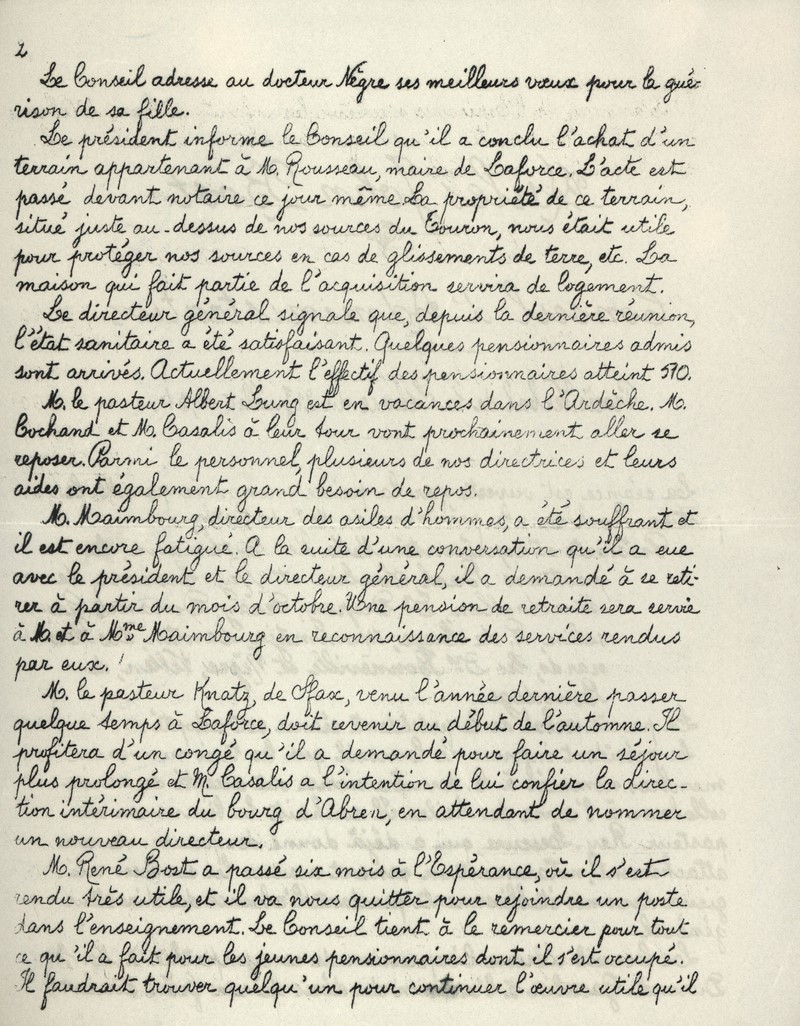 2
Le Conseil adresse au docteur Nègre ses meilleurs vœux pour la gué-
rison de sa fille.
Le président informe le Conseil qu'il a conclu l'achat d'un
terrain appartenant à M. Rousseau, maire de Laforce. L'acte est
passé devant notaire ce jour même. La propriété de ce terrain,
situé juste au-dessus de nos sources du Touron, nous était utile
pour protéger nos sources en cas de glissements de terre, etc. La
maison qui fait partie de l'acquisition servira de logement.
Le directeur général signale que, depuis la dernière réunion,
l'état sanitaire a été satisfaisant. Quelques pensionnaires admis
sont arrivés. Actuellement l'effectif des pensionnaires atteint 570.
M. le pasteur Albert Lung est en vacances dans l'Ardèche. M.
Cochand et M. Casalis à leur tour vont prochainement aller se
reposer. Parmi le personnel, plusieurs de nos directrices et leurs
aides ont également grand besoin de repos.
M. Maimbourg, directeur des asiles d'hommes, a été souffrant et
il est encore fatigué. A la suite d'une conversation qu'il a eue
avec le président et le directeur général, il a demandé à se reti-
rer à partir du mois d'octobre. Une pension de retraite sera servie
à M. et à Mme Maimbourg en reconnaissance des services rendus
par eux.
M. le pasteur Knatz, de Sfax, venu l'année dernière passer
quelque temps à Laforce, doit revenir au début de l'automne. Il
profitera d'un congé qu'il a demandé pour faire un séjour
plus prolongé et M. Casalis a l'intention de lui confier la direc-
tion intérimaire du bourg d'Abren, en attendant de nommer
un nouveau directeur.
M. René Bost a passé six mois à l'Espérance, où il s'est
rendu très utile, et il va nous quitter pour rejoindre un poste
dans l'enseignement. Le Conseil tient à le remercier pour tout
ce qu'il a fait pour les jeunes pensionnaires dont il s'est occupé.
Il faudrait trouver quelqu'un pour continuer l'œuvre utile qu'il